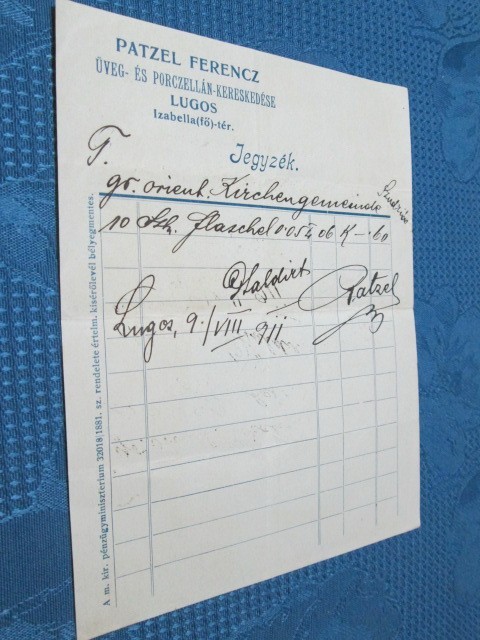 PATZEL FERENCZ
ÜVEG- ÉS PORCZELLÁN-KERESKEDÉSE
LUGOS
Izabella(fő)-tér.
Jegyzék.
T.
gr. orient. Kirchengemeinde
10 Stk. Flaschel 0·05 06 K —·60
Saldirt
Patzel
Lugos, 9./VIII 911
A m. kir. pénzügyminiszterium 32018/1881. sz. rendelete értelm. kisérőlevél bélyegmentes.